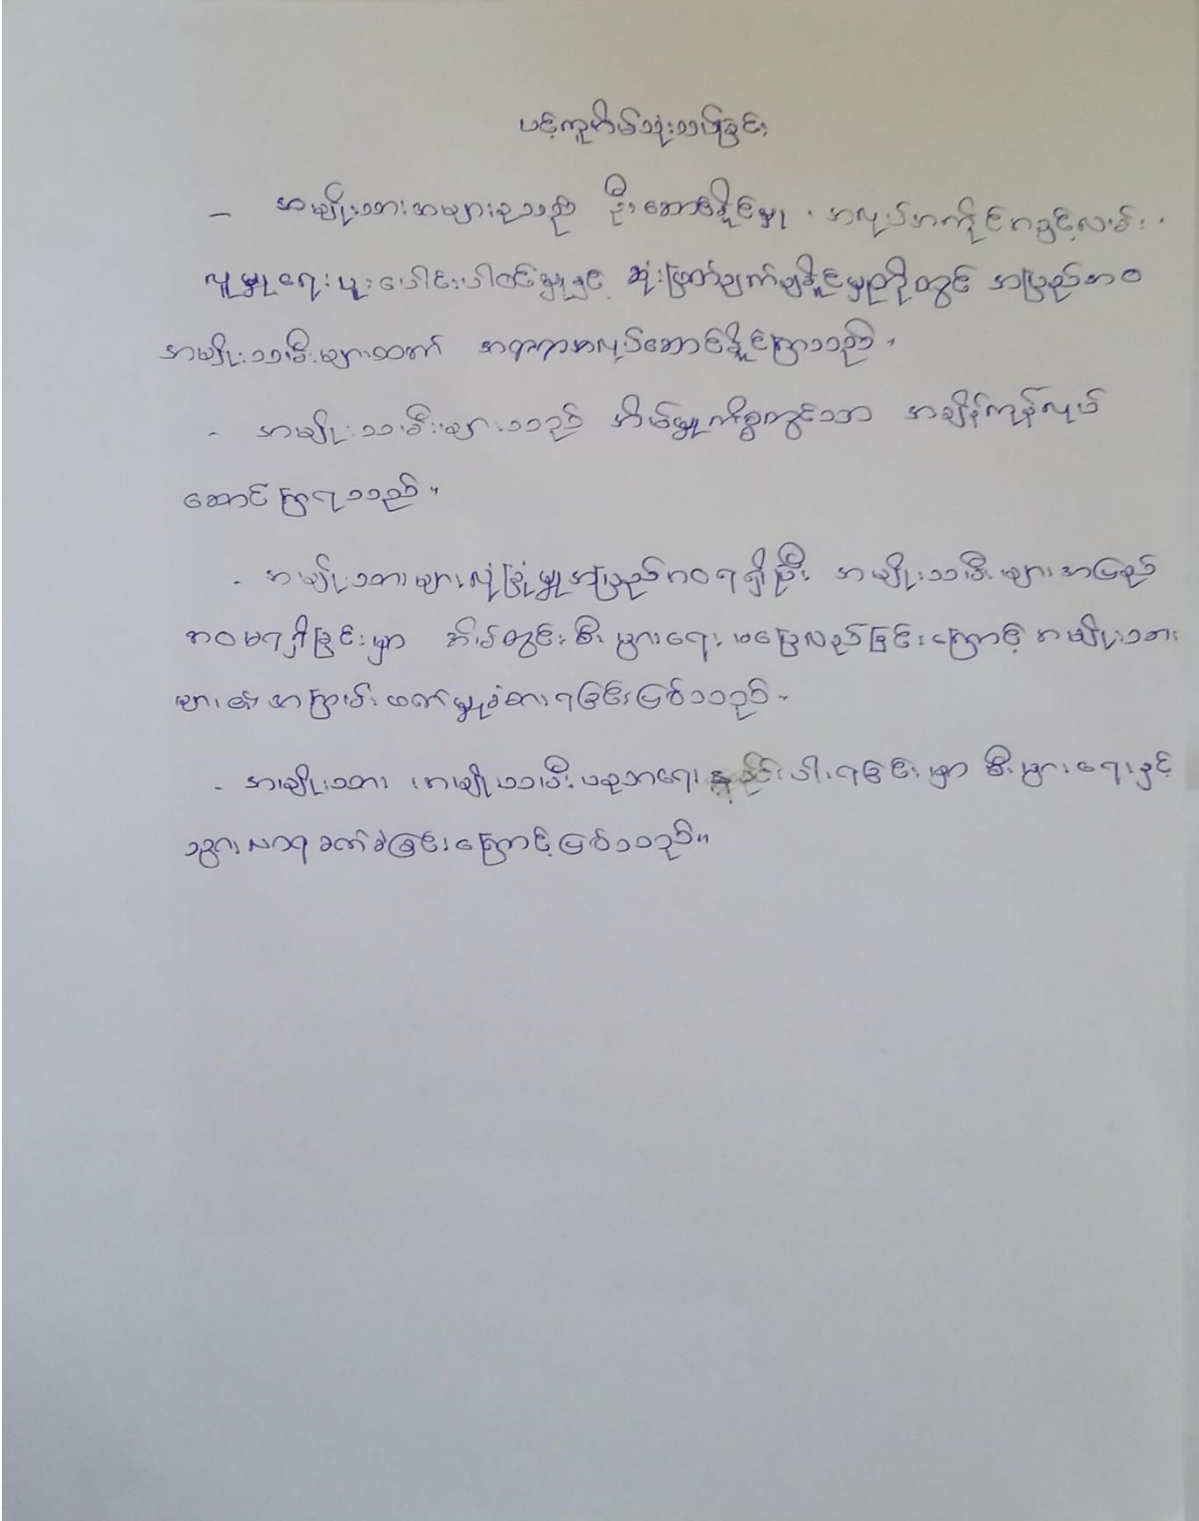 ပင့်ကူအိမ်သုံးသပ်ခြင်း
- အမျိုးသားအများစုသည် ဦးဆောင်နိုင်မှု ၊ အလုပ်အကိုင်အခွင့်လမ်း ၊
လူမှုရေးပူးပေါင်းပါဝင်မှုနှင့် ဆုံးဖြတ်ချက်ချနိုင်မှုတို့တွင် အပြည့်အဝ
အမျိုးသမီးများထက် အရာရာအလုပ်ဆောင်နိုင်ကြသည်။
- အမျိုးသမီးများသည် အိမ်မှုကိစ္စတွင်သာ အချိန်ကုန်လုပ်
ဆောင်ကြရသည်။
- အမျိုးသားများလုံခြုံမှုအပြည့်အဝရရှိပြီး အမျိုးသမီးများအပြည့်
အဝမရရှိခြင်းမှာ အိမ်တွင်းစီးပွားရေးမပြေလည်ခြင်းကြောင့် အမျိုးသား
များ၏ အကြမ်းဖက်မှုခံစားရခြင်းဖြစ်သည်။
- အမျိုးသား ၊ အမျိုးသမီးပညာရေး နည်းပါးရခြင်းမှာ စီးပွားရေးနှင့်
သွားလာရခက်ခဲခြင်းကြောင့်ဖြစ်သည်။